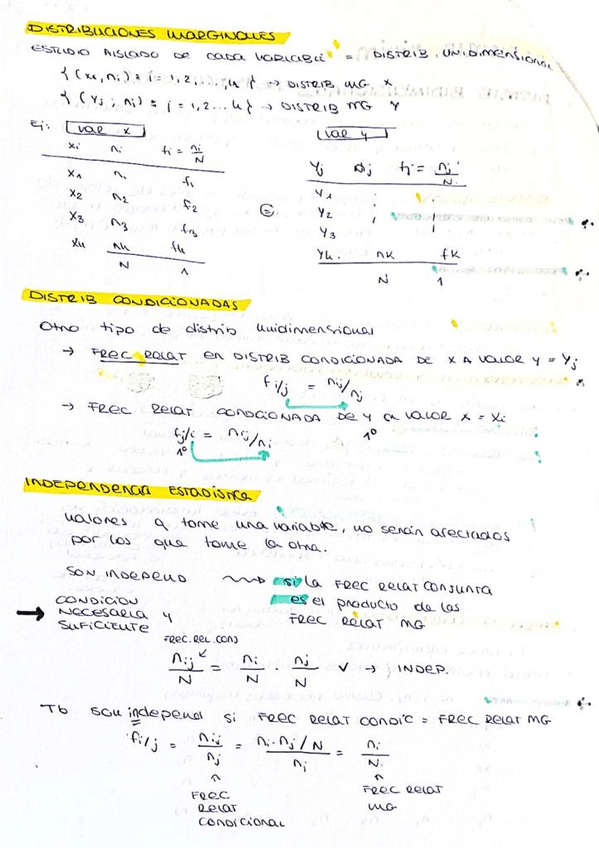 DISTRIBUCIONES MARGINALES
ESTUDIO AISLADO DE CADA VARIABLE = DISTRIB. UNIDIMENSIONAL
{(xi, ni) = i = 1,2,...,k} → DISTRIB MG X
{(yj, nj) = j = 1,2...k} → DISTRIB MG Y
Ej: var x var y
xi ni fi = ni/N
x1 n1 f1
x2 n2 f2
x3 n3 f3
xk nk fk
N 1
yj nj fj = nj/N
y1
y2
y3
yk nk fk
N 1
DISTRIB CONDICIONADAS
Otro tipo de distrib unidimensional
→ FREC RELAT EN DISTRIB CONDICIONADA DE X A VALOR Y = Yj
fi/j = nij/nj
→ FREC RELAT CONDICIONADA DE Y a VALOR X = Xi
fj/i = nij/ni 1º
1º
INDEPENDENCIA ESTADÍSTICA
Valores q tome una variable, no serán afectados
por los que tome la otra.
SON INDEPEND si la FREC RELAT CONJUNTA
es el producto de las
FREC RELAT MG
→ CONDICION
NECESARIA Y
SUFICIENTE
FREC. REL. CONJ
nij/N = ni/N · nj/N ✓ → INDEP.
Tb son independ si FREC RELAT CONDIC = FREC RELAT MG
fi/j = nij/nj = ni·nj/N / nj = ni/N
FREC
RELAT
CONDICIONAL
FREC RELAT
MG